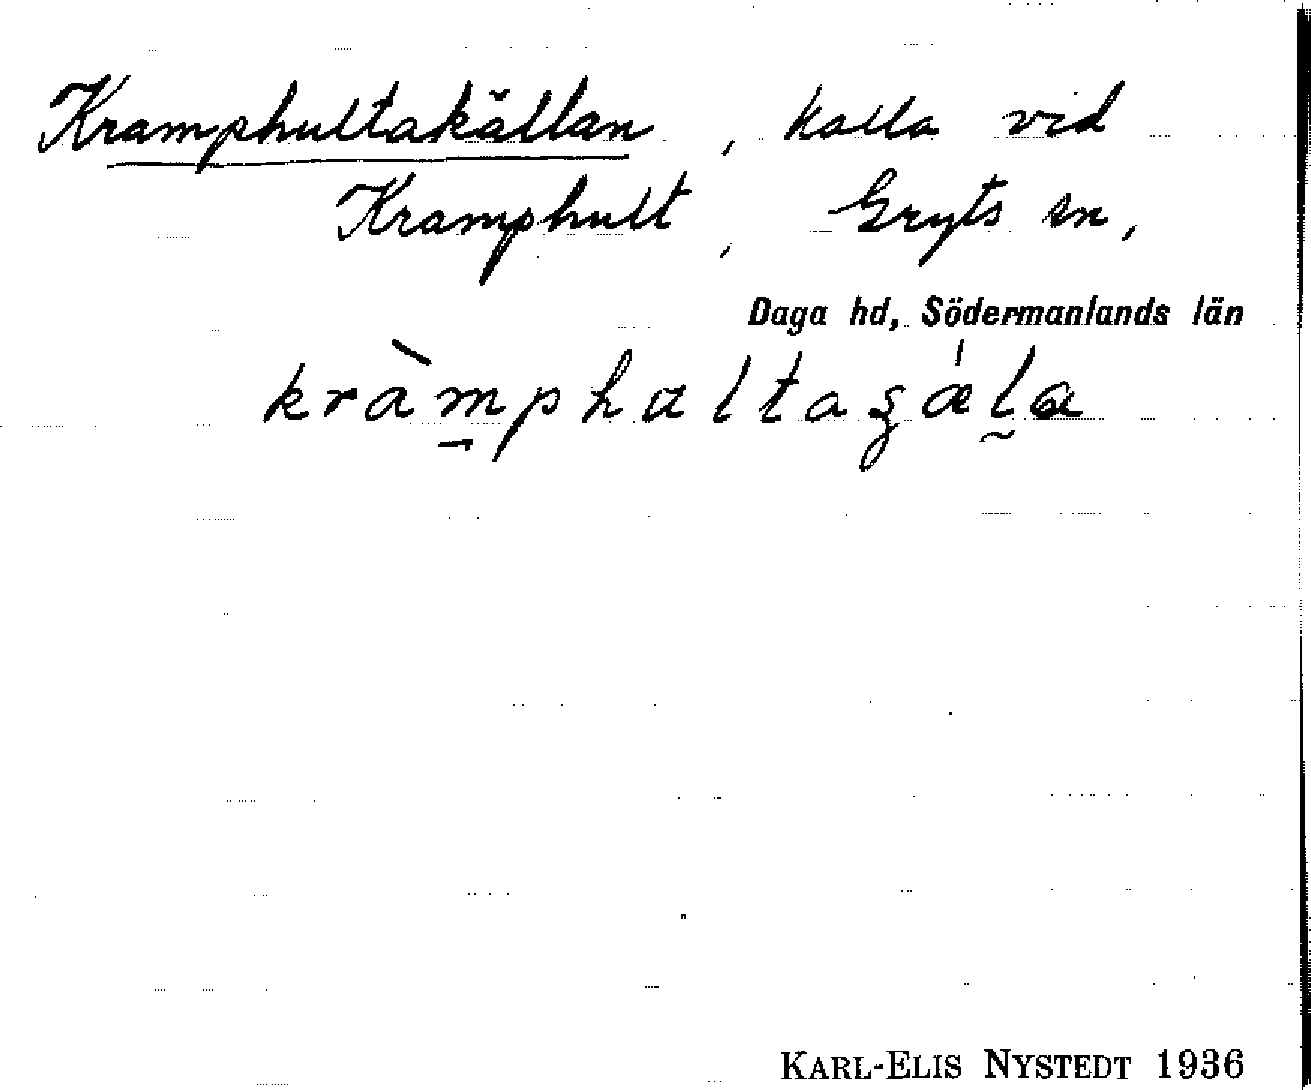 Kramphultakällan, kalla vid
Kramphult, Gryts sn,
Daga hd, Södermanlands län
KARL-ELIS NYSTEDT 1936